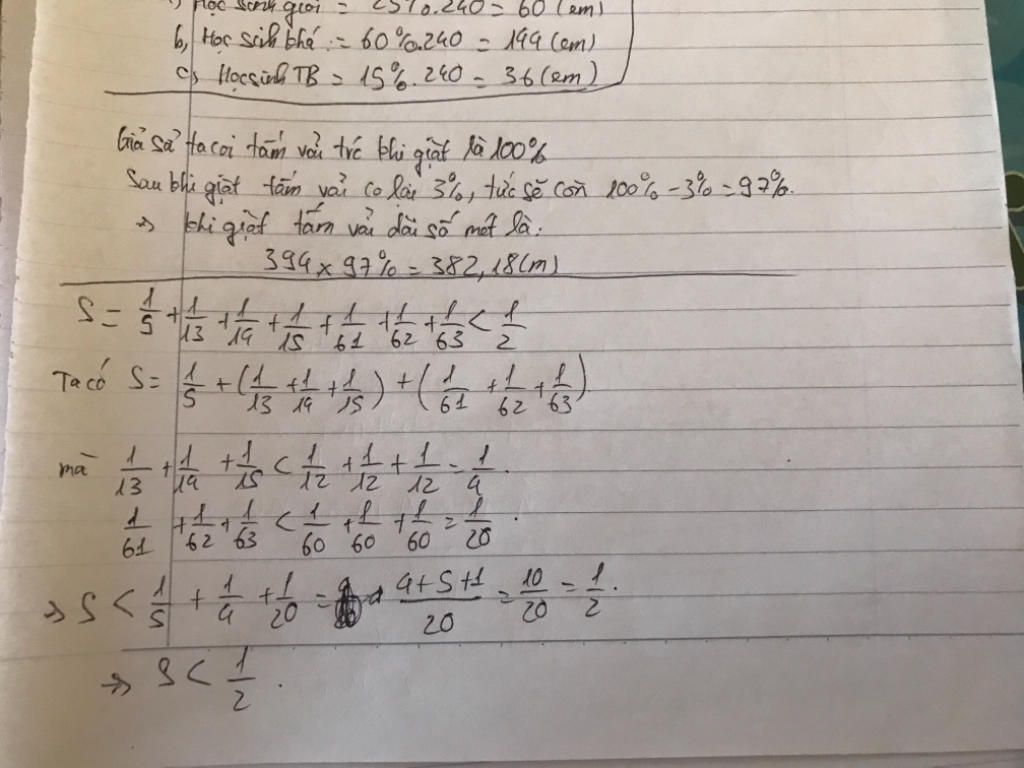 a) Học sinh giỏi = 25%.240 = 60 (em)
b, Học sinh khá := 60%.240 = 144 (em)
c, Học sinh TB = 15%.240 = 36 (em)
Giả sử ta coi tấm vải trc khi giặt là 100%
Sau khi giặt tấm vải co lại 3%, tức sẽ còn 100% - 3% = 97%.
=> khi giặt tấm vải dài số mét là:
394 x 97% = 382,18 (m)
S = 1/5 + 1/13 + 1/14 + 1/15 + 1/61 + 1/62 + 1/63 < 1/2
Ta có S = 1/5 + (1/13 + 1/14 + 1/15) + (1/61 + 1/62 + 1/63).
mà 1/13 + 1/14 + 1/15 < 1/12 + 1/12 + 1/12 = 1/4.
1/61 + 1/62 + 1/63 < 1/60 + 1/60 + 1/60 = 1/20.
=> S < 1/5 + 1/4 + 1/20 = (4+5+1)/20 = 10/20 = 1/2.
=> S < 1/2.